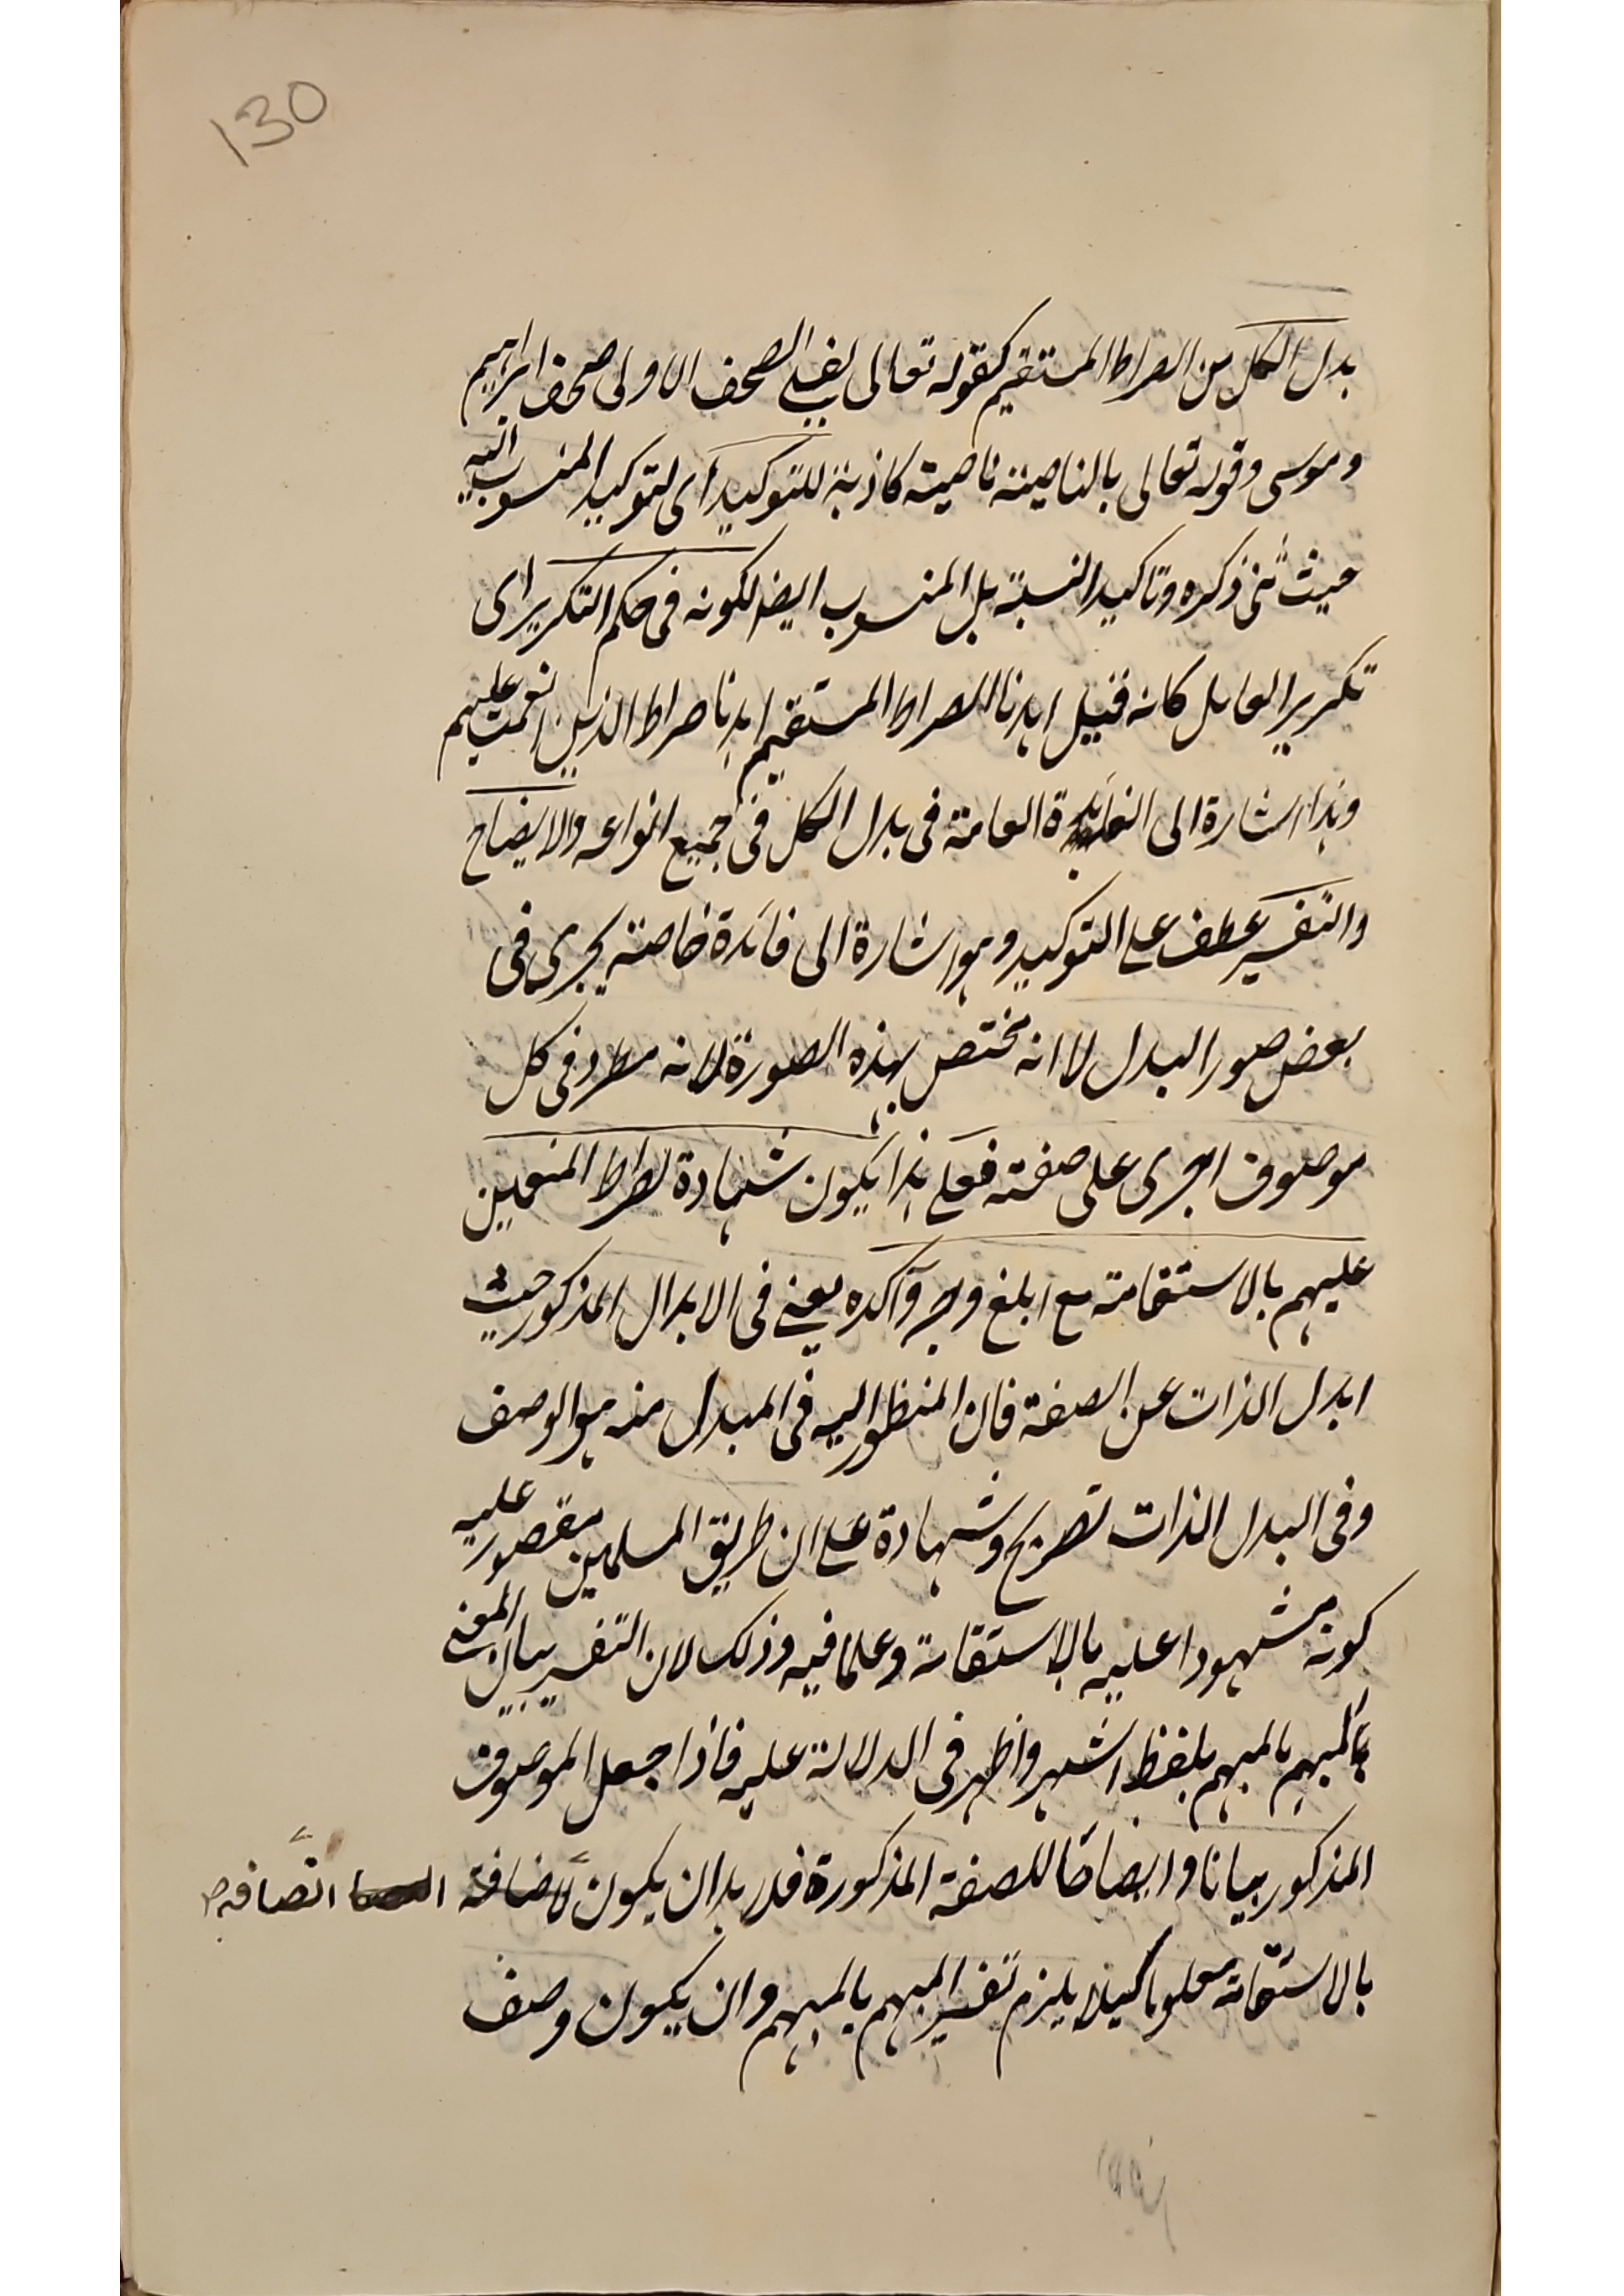 130
بدل الكل من الصراط المستقيم كقوله تعالى لفي الصحف الاولى صحف ابراهيم
وموسى وقوله تعالى بالناصية ناصية كاذبة للتوكيد اى لتوكيد المنسوب اليه
حيث ثنى ذكره وتاكيد النسبة بل المنسوب ايضا لكونه فى حكم التكرير اى
تكرير العامل كانه قيل اهدنا الصراط المستقيم اهدنا صراط الذين انعمت عليهم
وهذا اشارة الى الفائدة العامة فى بدل الكل فى جميع انواعه والايضاح
والتفسير عطف على التوكيد وهو اشارة الى فائدة خاصة يجرى فى
بعض صور البدل لا انه مختص بهذه الصورة لانه مطرد فى كل
موصوف اجرى على صفته فعلى هذا يكون شهادة لصراط المنعمين
عليهم بالاستقامة مع ابلغ وجه وآكده يعنى فى الابدال المذكور حيث
ابدل الذات عن الصفة فان المنظور اليه فى المبدل منه هو الوصف
وفى البدل الذات تصريح وشهادة على ان طريق المسلمين مقصور عليه
كونه مشهودا عليه بالاستقامة وعلما فيه وذلك لان التفسير بيان المعنى
بالمبهم بالمبهم بلفظ اشهر واظهر فى الدلالة عليه فاذا جعل الموصوف
المذكور بيانا وايضاحا للصفة المذكورة فلا بد ان يكون لاضافة
اتصافه
بالاستقامة معلوما كيلا يلزم تفسير المبهم بالمبهم وان يكون وصف